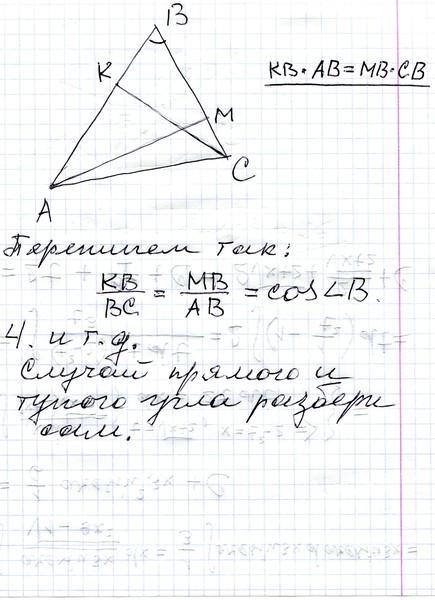 B
K
KB·AB=MB·CB
M
C
A
Перепишем так:
KB/BC = MB/AB = cos∠B.
Ч. и т.д.
Случай прямого и
тупого угла разбери
сам.